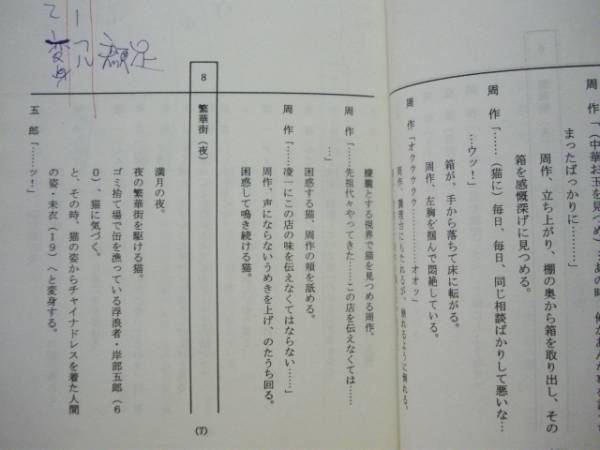 周　作「（中華お玉を見つめ）
まったばっかりに……」
周作、立ち上がり、棚の奥から箱を取り出し、その
箱を感慨深げに見つめる。
周　作「……（猫に）毎日、毎日、同じ相談ばかりして悪いな…
…ウッ！」
箱が、手から落ちて床に転がる。
周作、左胸を掴んで悶絶している。
周　作「オウウウウウ……………オオッ」
朦朧とする視界で猫を見つめる周作。
周　作「……先祖代々やってきた……この店を伝えなくては……
困惑する猫、周作の頬を舐める。
周　作「……凌一にこの店の味を伝えなくてはならない………」
周作、声にならないうめきを上げ、のたうち回る。
困惑して鳴き続ける猫。
8　繁華街（夜）
満月の夜。
夜の繁華街を駆ける猫。
ゴミ捨て場で缶を漁っている浮浪者・岸部五郎（６
０）、猫に気づく。
と、その時、猫の姿からチャイナドレスを着た人間
の姿・未衣（１９）へと変身する。
五　郎「……ッ！」
(7)
変身